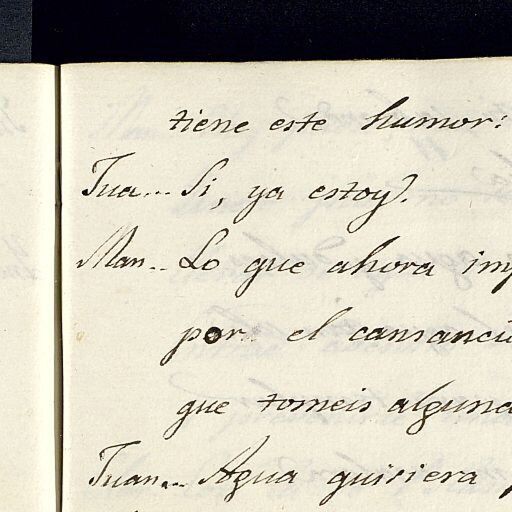 tiene este humor:
Jua... Si, ya estoy.
Man.. Lo que ahora imp
por el cansanci
que tomeis alguna
Juan... Agua quisiera